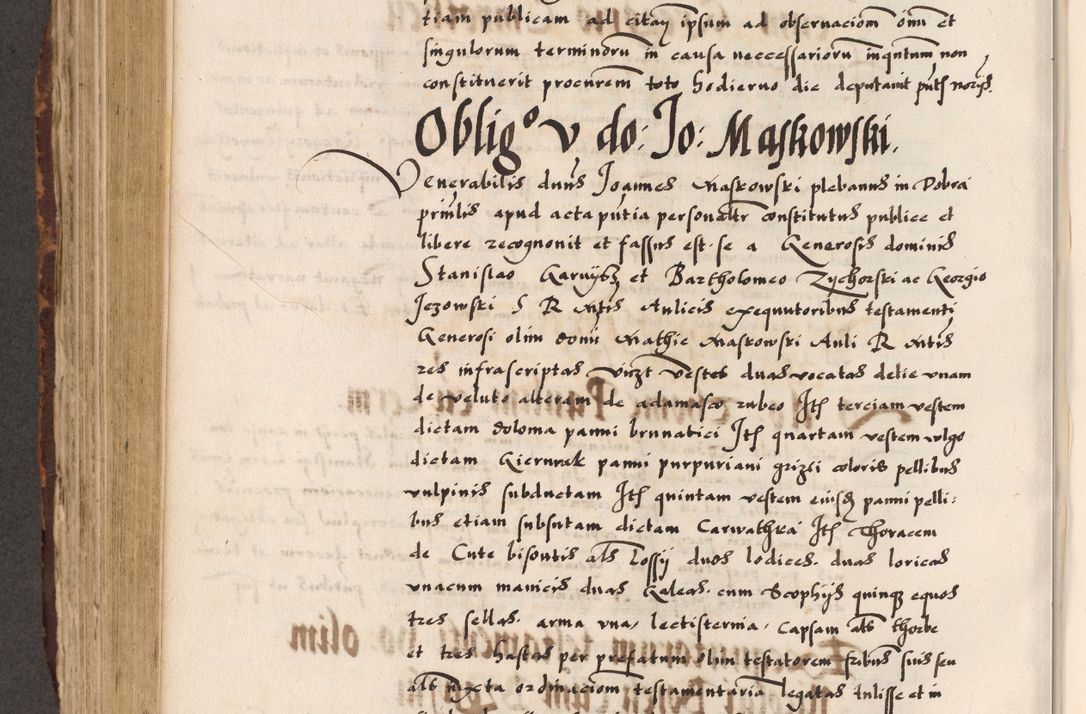 tiam publicam ad citaꝶ ipsum ad observaciom omi et
singulorum terminoru in causa neccessarioru inqntum non
constituerit procurem toto hodierno die deputavit pñts noriis
Obligo v do: Jo: Maskowski.
Venerabilis duns Joannes Maskowski plebanus in Dobra
prinlis apud acta pñtia personaltr constitutus publice et
libere recognovit et fassus est se a Generosis dominis
Stanislao et Bartholomeo Zychorski ac Georgio
Jezowski S R Mtis Aulicis exequutoribus testamenti
Generosi olim domi Mathie Maskowski Auli R Mtis
res infrascriptas vizt vestes duas vocatas delie unam
de veluto alteram de adamasco rubeo Itẽ terciam vestem
dictam doloma panni brunatici Itẽ quartam vestem vulgo
dictam Giermak panni purpuriani grizei coloris pellibus
vulpinis subductam Itẽ quintam vestem panni pelli:
bus etiam subsutam dictam Itẽ Thoracem
de Cute bisontis als Lossij duos lodices duas loricas
unacum manicis duas Galeas cum quinqꝫ equos
tres sellas arma una, lectisternia, Capsam als thorbe
et tres hastas per prefatum olim testatorem fribus suis seu
als iuxta ordinaciom testamentaria legatas tulisse et in